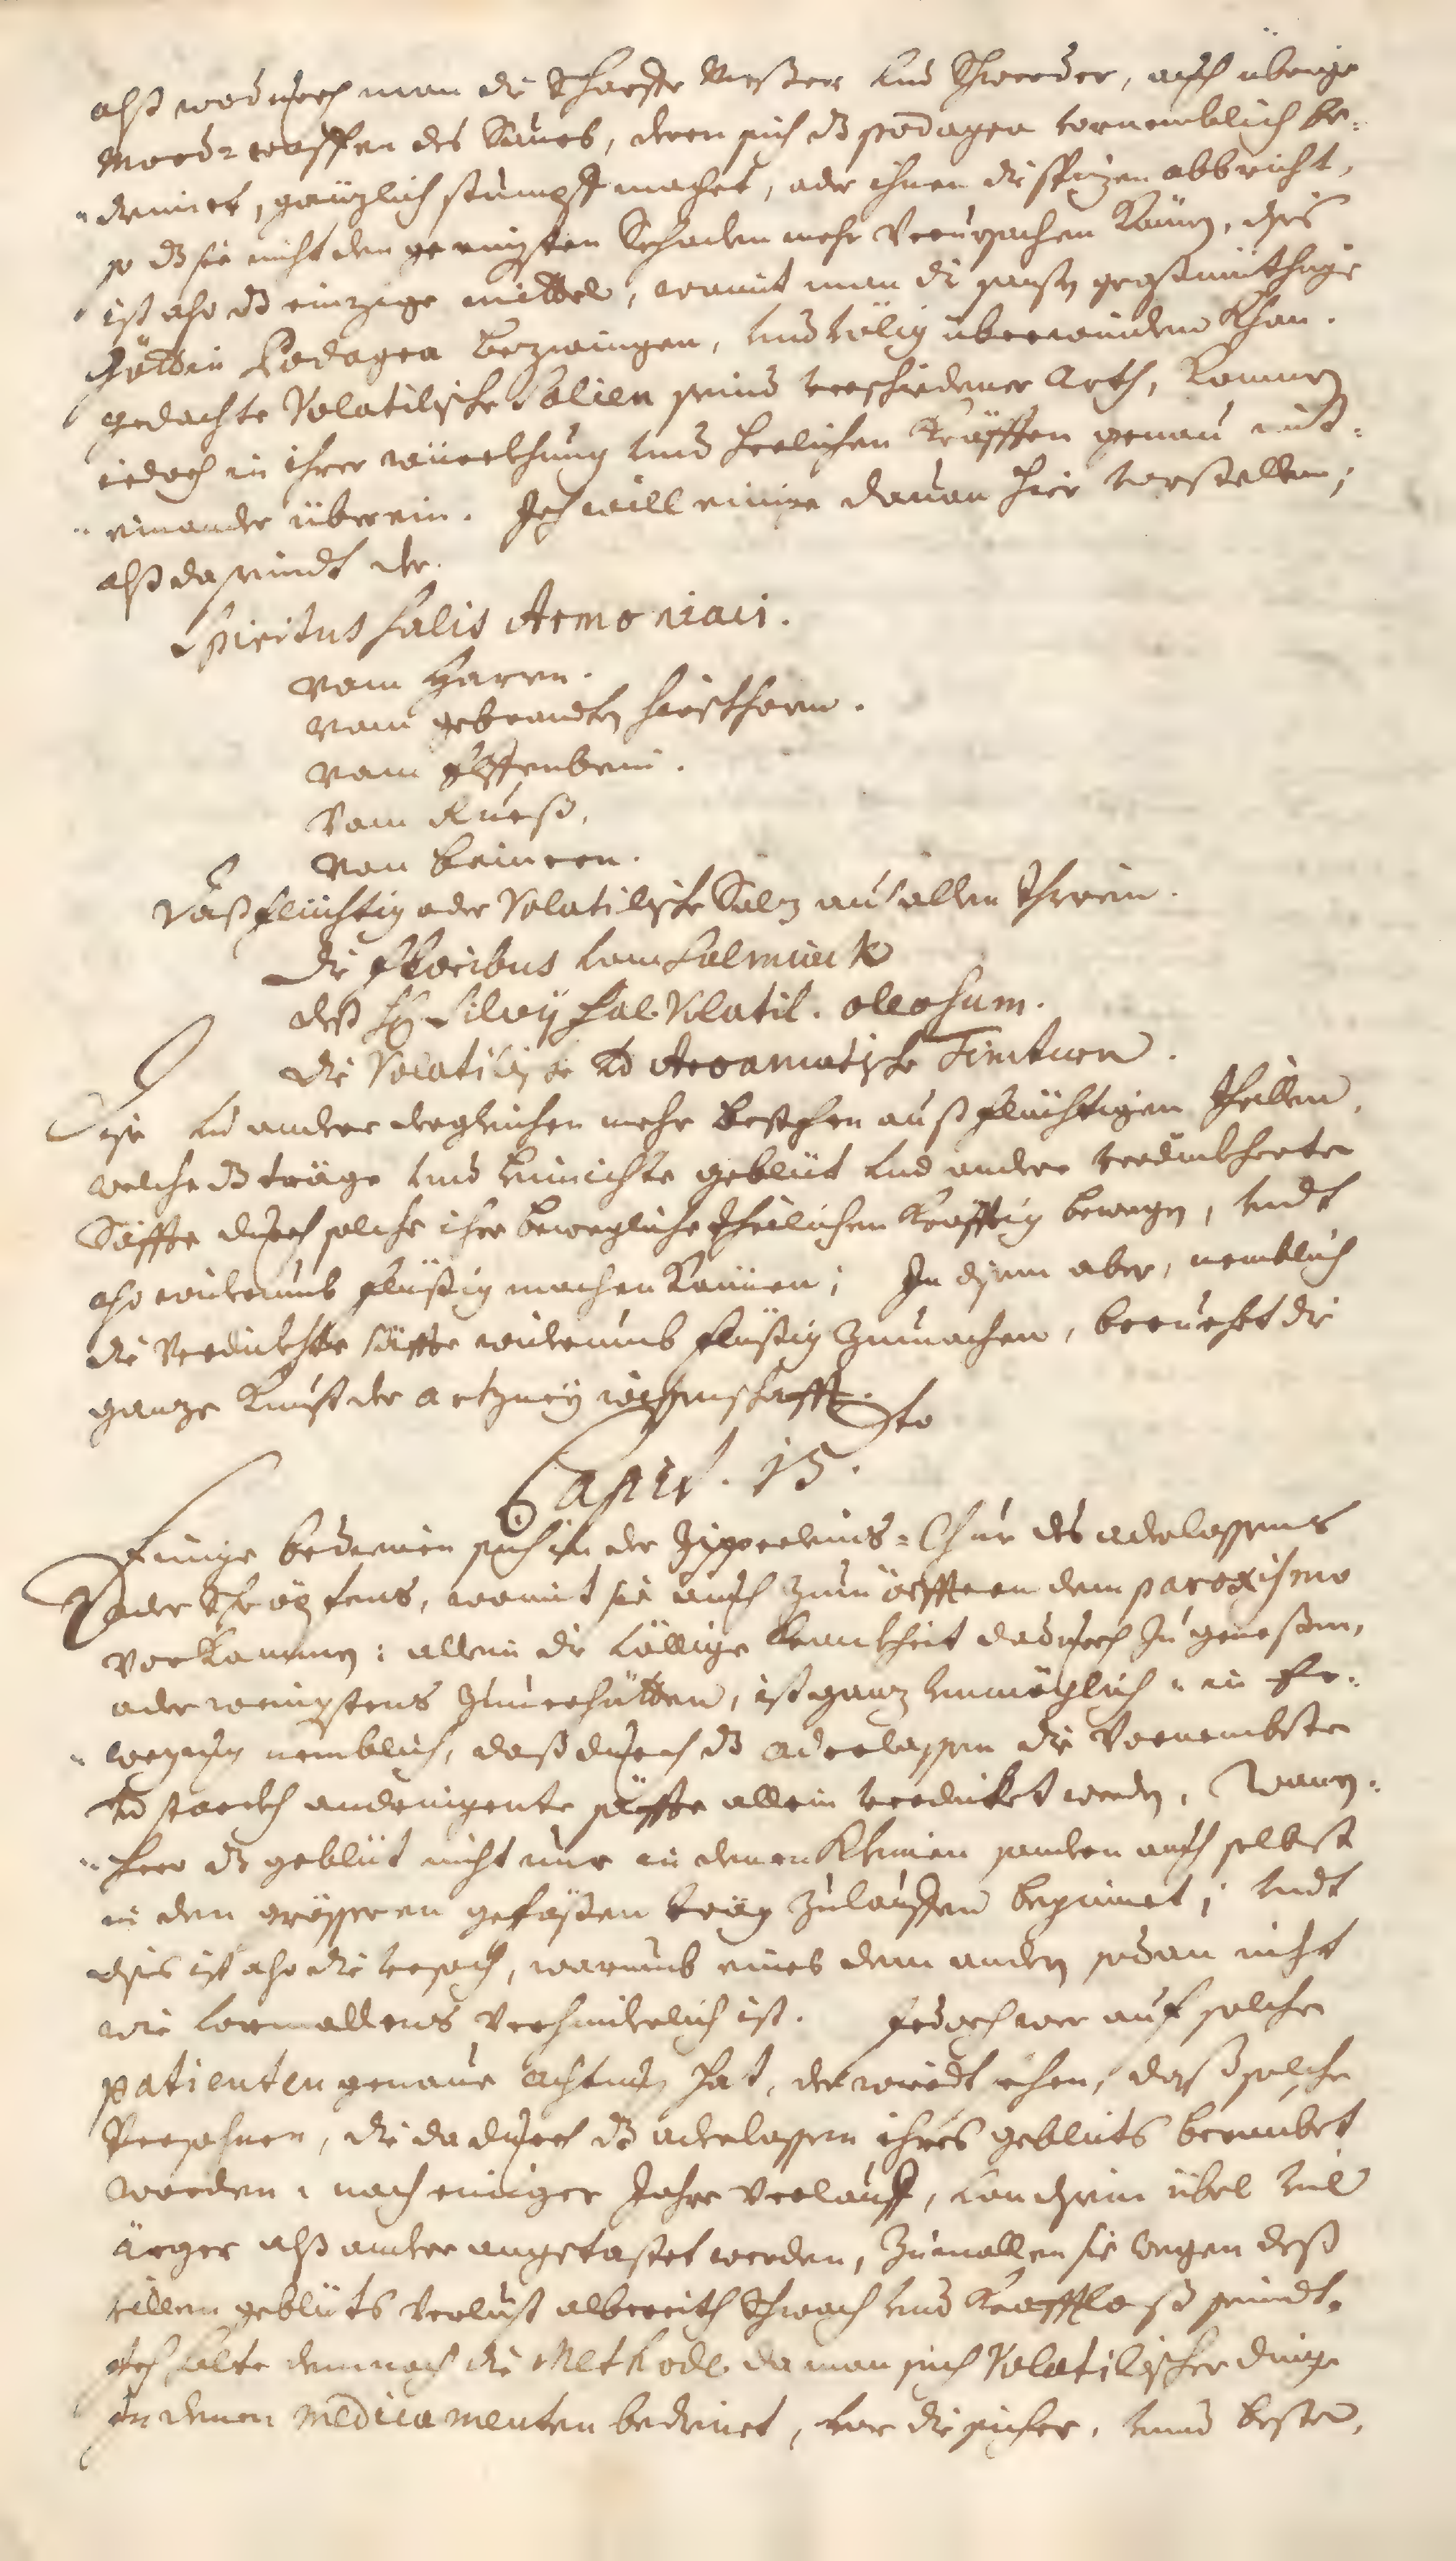 alß wodurch man die scharffe Messer und Schwerder, auch übrige
Mord-waffen des Saurs, deren sich dz podagra vornemblich be-
dienet, gänzlich stumpff machet, oder ihnen die spizen abbricht,
so dz sie nicht den geringsten Schaden mehr verursachen können, dis
ist also dz einzige mittel, womit man die sonst großmüthige
Göttin Podagra bezwingen, und völlig überwinden khan.
gedachte Volatilische Salien seind verschiedener Arth, kommen
iedoch in ihrer würckhung und herlichen Kräfften genau mit-
einander überein. Ich will einige davon hier vorstellen,
alß da seindt der.
Spiritus salis Armoniaci.
vom Harrn.
vom gebrandten hirschhorn.
vom Helffenbein.
vom Rueß.
von beineren.
Daß flüchtig oder Volatilische Salz aus allen Ihrein.
Die floribus vom Salmiack
deß H. Silvij Sal Volatil. oleosum.
die Volatilische und Aromatische Tincturen.
Dise und andere dergleichen mehr bestehen auß flüchtigen theillen,
welche dz träge und hinichte geblüt und andere verdickherte
Säffte durch solche ihre bewegliche theilichen kräfftig bewegen, undt
also widerumb flüßig machen können; In disem aber, nemblich
die verdickhte säffte widerumb flüßig zumachen, beruehet die
ganze Kunst der artzney wissenschafft.
Capit. 15.to
Einige bedienen sich in der Zipperleins-Chur des aderlassens
oder Schröpfens, womit sie auch zum öffteren dem paroxismo
vorkommen: allein die völlige kranckheit dadurch zu genesen,
oder wenigstens zuverhütten, ist ganz unmöglich, in Er-
wegung nemblich, daß durch dz aderlassen die vornembste
und starckh andringente säffte allein verdicket werden, Wann-
hero dz geblüt nicht nur in denen kleinen sondern auch selbst
in den grösseren gefäßen träg zulauffen beginnet; undt
diß ist also die ursach, warumb eines dem andern sodan nicht
wie vormallens verhinderlich ist. Jedoch wer auf solche
patienten genaue achtung hat, der wirdt sehen, daß solche
Persohnen, die da durch dz aderlassen ihres geblüts beraubet
worden, nach einiger Jahre verlauff, von disem übel viel
ärger alß andere angetastet werden, zumallen sie wegen deß
villen geblüts verlust albereith schwach und kraftloß seindt.
Ich halte demnach die Methode, da man sich Volatilischer dinge
in denen medicamenten bedienet, vor die sicher, und beste,